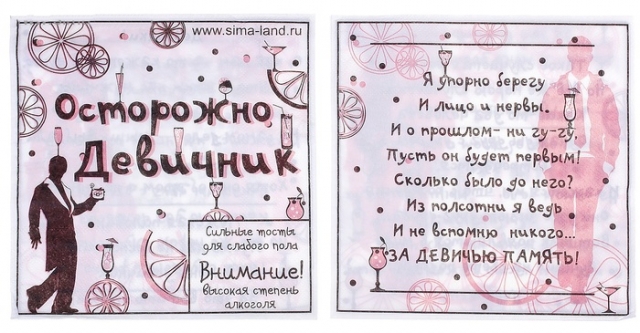 www.sima-land.ru
Осторожно
Девичник
Сильные тосты
для слабого пола
Внимание!
высокая степень
алкоголя
Я упорно берегу
И лицо и нервы.
И о прошлом- ни гу-гу,
Пусть он будет первым!
Сколько было до него?
Из полсотни я ведь
И не вспомню никого...
ЗА ДЕВИЧЬЮ ПАМЯТЬ!